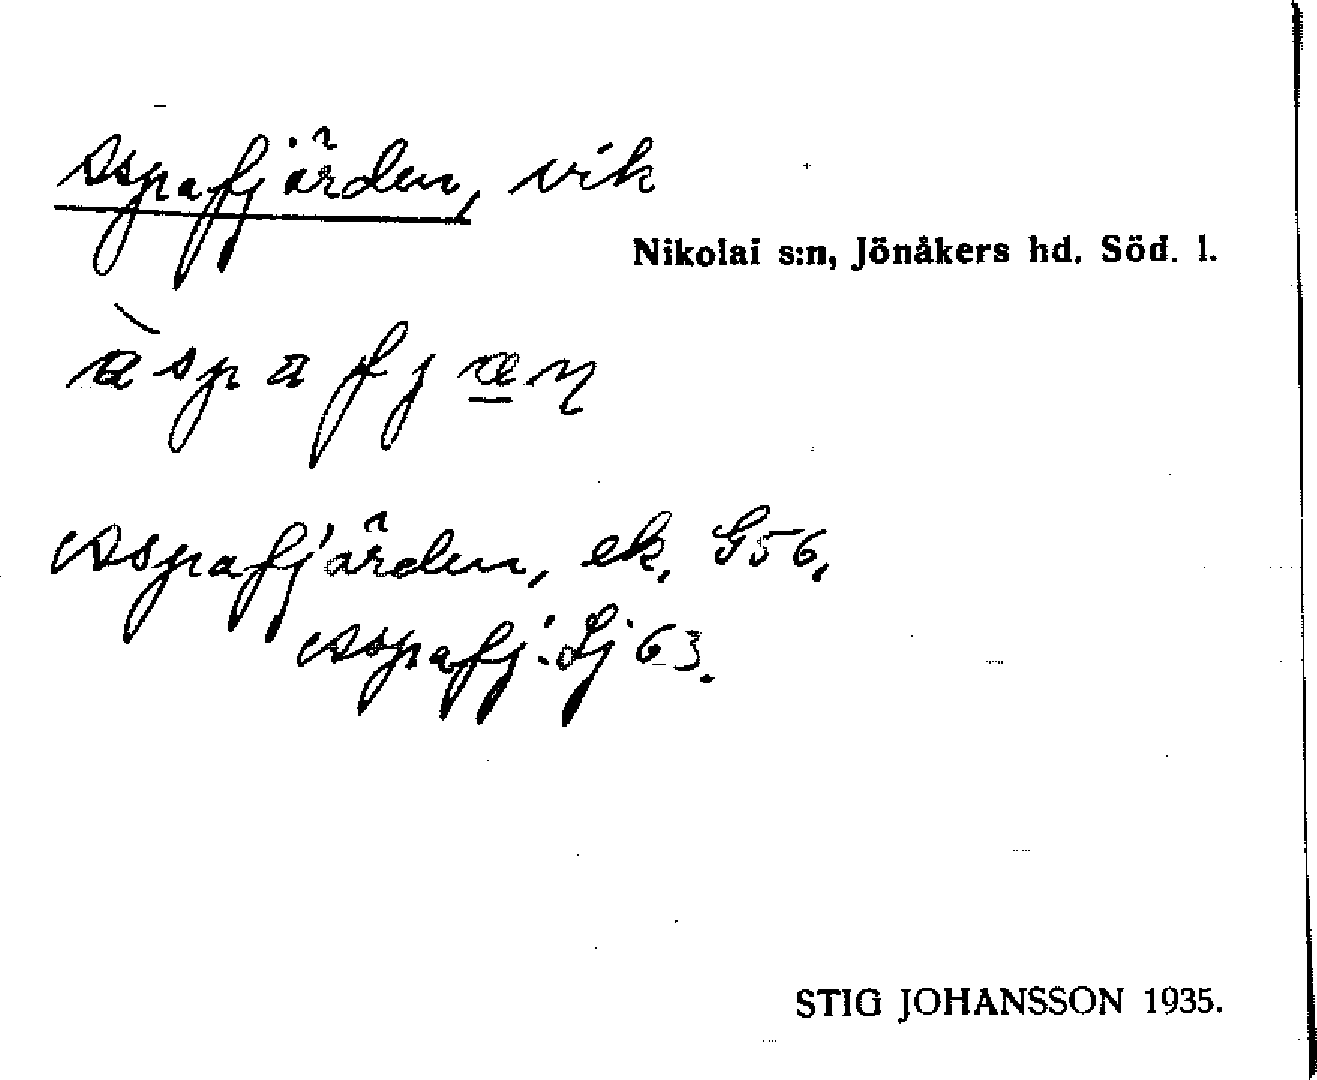 Aspafjärden, vik
Nikolai s:n, Jönåkers hd. Söd. l.
àspafjæ̱ɳ
Aspafjärden, ek. G56,
Aspafj. Lj 63.
STIG JOHANSSON 1935.